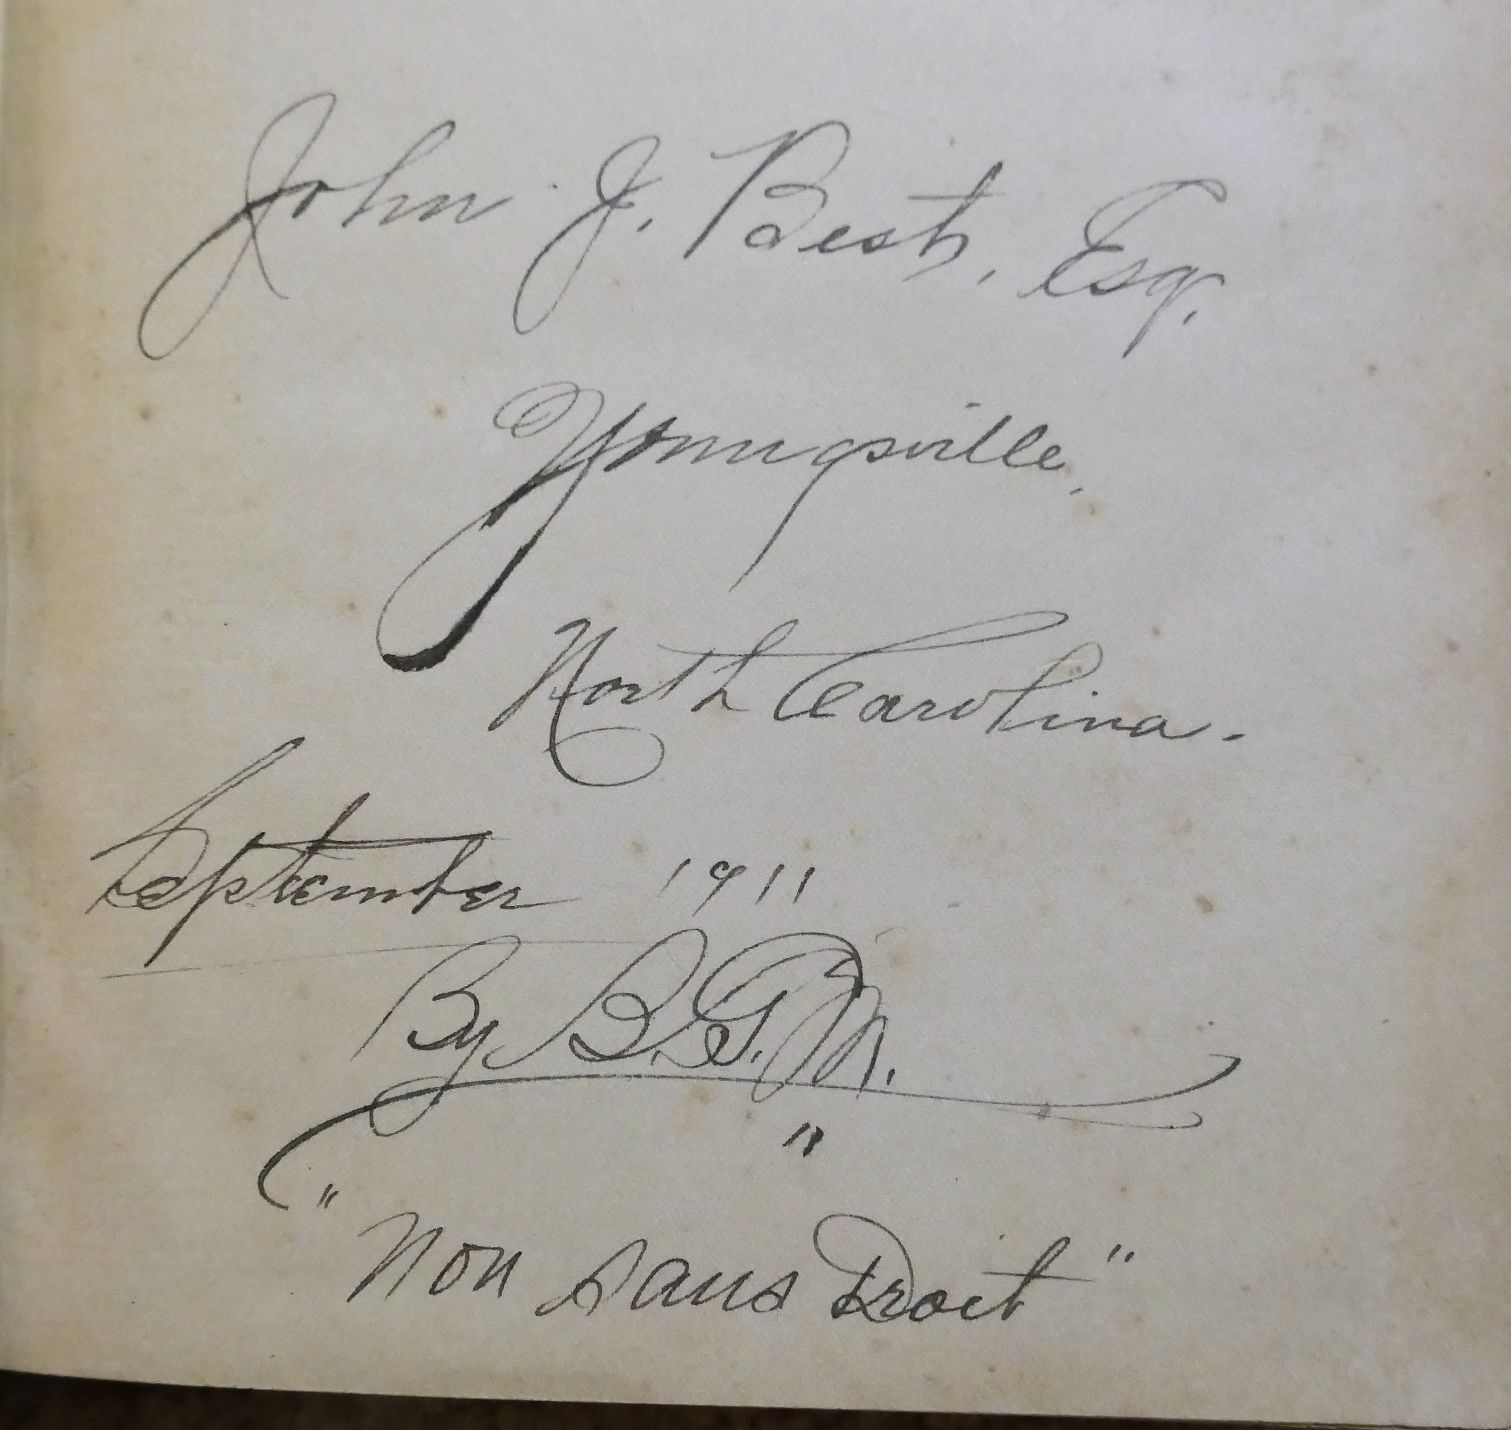 John J. Best, Esq.
Youngsville,
North Carolina.
September 1911
By B. G. M.
"
"Non sans Droit"